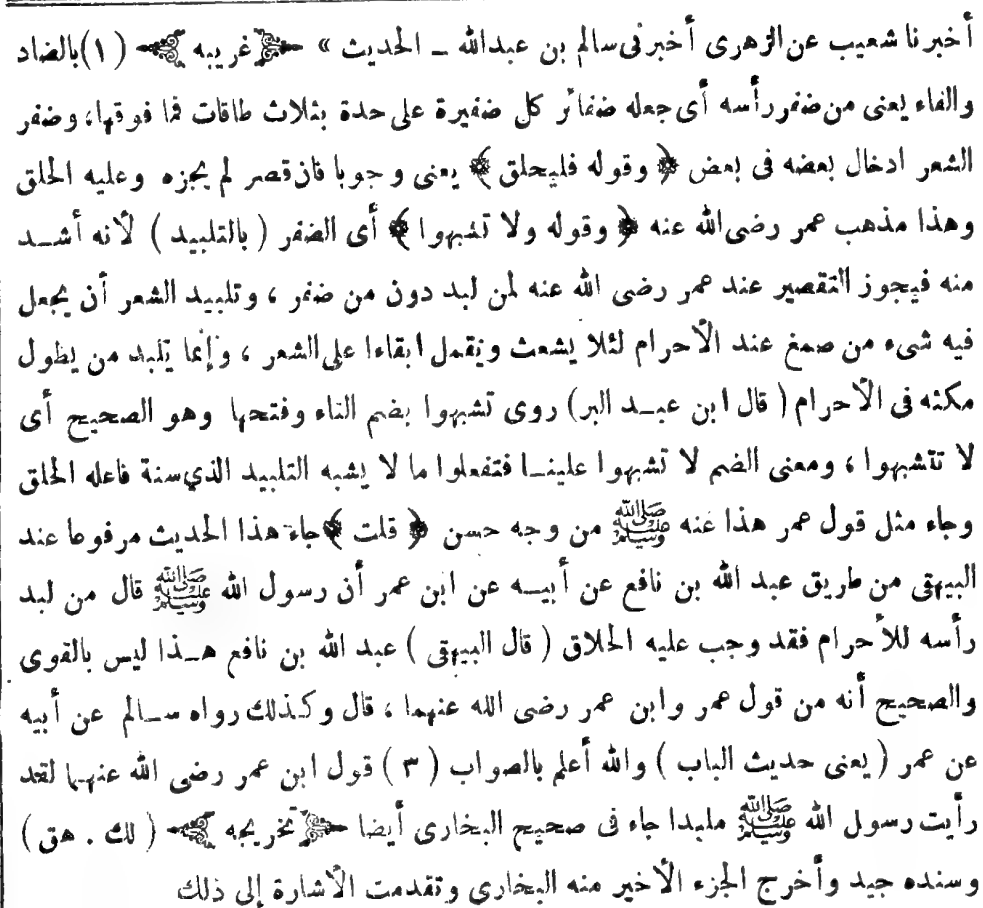 أخبرنا شعيب عن الزهرى أخبرنى سالم بن عبدالله ــ الحديث » ﴿ غريبه ﴾ (١) بالضاد
والفاء يعنى من ضفر رأسه أى جعله ضفائر كل ضفيرة على حدة بثلاث طاقات فما فوقها، وضفر
الشعر ادخال بعضه فى بعض ﴿ وقوله فليحلق ﴾ يعنى وجوبا فان قصر لم يجزه وعليه الحلق
وهذا مذهب عمر رضى الله عنه ﴿ وقوله ولا تشبهوا ﴾ أى الضفر ( بالتلبيد ) لأنه أشــد
منه فيجوز التقصير عند عمر رضى الله عنه لمن لبد دون من ضفر ، وتلبيد الشعر أن يجعل
فيه شىء من صمغ عند الأحرام لئلا يشعث ويقمل ابقاءا على الشعر ، وإنما يلبد من يطول
مكثه فى الأحرام ( قال ابن عبــد البر) روى تشبهوا بضم التاء وفتحها وهو الصحيح أى
لا تتشبهوا ، ومعنى الضم لا تشبهوا علينــا فتفعلوا ما لا يشبه التلبيد الذي سنة فاعله الحلق
وجاء مثل قول عمر هذا عنه ﷺ من وجه حسن ﴿ قلت ﴾ جاء هذا الحديث مرفوعا عند
البيهقى من طريق عبد الله بن نافع عن أبيــه عن ابن عمر أن رسول الله ﷺ قال من لبد
رأسه للأحرام فقد وجب عليه الحلاق ( قال البيهقى ) عبد الله بن نافع هــذا ليس بالقوى
والصحيح أنه من قول عمر وابن عمر رضى الله عنهما ، قال وكذلك رواه ســالم عن أبيه
عن عمر ( يعنى حديث الباب ) والله أعلم بالصواب ( ٣ ) قول ابن عمر رضى الله عنهما لقد
رأيت رسول الله ﷺ ملبدا جاء فى صحيح البخارى أيضا ﴿ تخريجه ﴾ ( لك . هق )
وسنده جيد وأخرج الجزء الأخير منه البخارى وتقدمت الأشارة إلى ذلك